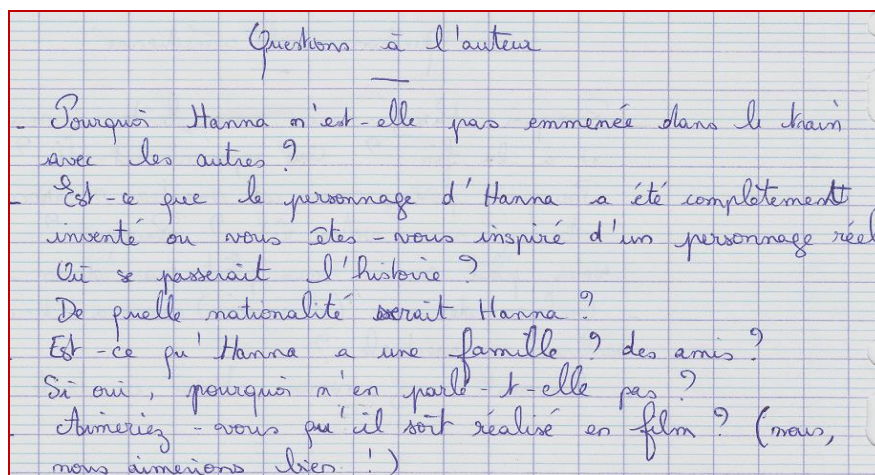 Questions à l'auteur
- Pourquoi Hanna n'est-elle pas emmenée dans le train
avec les autres ?
- Est-ce que le personnage d'Hanna a été complètement
inventé ou vous êtes-vous inspiré d'un personnage réel
Où se passerait l'histoire ?
De quelle nationalité serait Hanna ?
Est-ce qu'Hanna a une famille ? des amis ?
Si oui, pourquoi n'en parle-t-elle pas ?
- Aimeriez-vous qu'il soit réalisé en film ? (nous,
nous aimerions bien !)